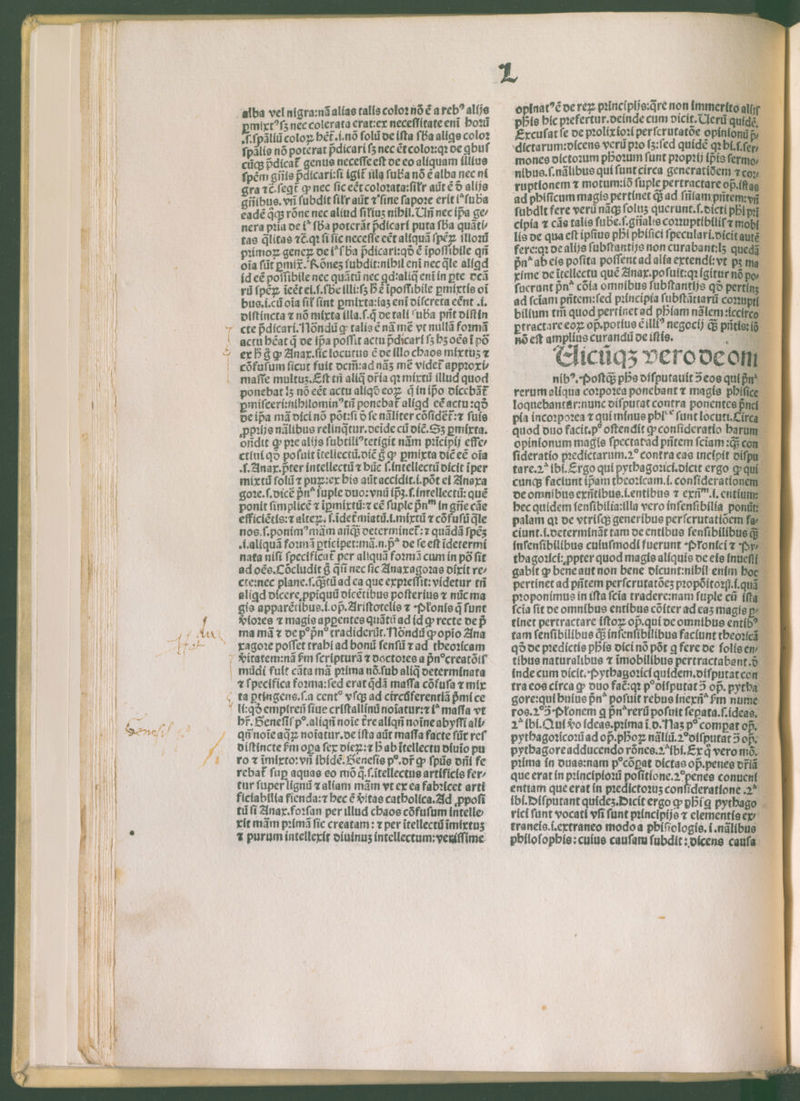 L
alba vel nigra:nā alias talis color nō ē a reb⁹ alijs
ꝑmixt⁹ sꝫ nec colerata erat:ex necessitate enī horū
.s.spāliū coloꝝ hēt̄.i.nō solū de ista sb̄a aliqs color
spālis nō poterat p̄dicari sꝫ nec ēt color:qꝛ de qbus
cūqꝫ p̄dicat̄ genus necesse est de eo aliquam illius
spēm p̄dicari:si igit̄ illa sub̄a nō ē alba nec ni
gra ⁊c̄.seqt̄ ꝙ nec sic eēt colorata:silr̄ aūt ē ō alijs
gn̄ibus.vn̄ subdit silr̄ aūt ⁊ sine sapore erit sub̄a
eadē rōne nec aliud nihil. nec ip̄a ge/
nera pria de sb̄a poterāt p̄dicari puta sb̄a quāti/
tas q̄litas ⁊c̄.qꝛ si sic necesse eēt aliquā spēꝝ illorū
primoꝝ geneꝝ de sb̄a p̄dicari:qd̄ ē īpossibile qn̄
oīa sūt ꝑmix̄.Rōneꝫ subdit:nihil enī nec q̄le aliqd
id eē possibile nec quātū nec qd:aliq̄ enī in ꝑte dcā
rū spēꝝ īeēt ei.s.sb̄e illi:sꝫ h̄ ē īpossibile ꝑmixtis oī
bus.i.cū oīa sil̄ sint ꝑmixta:iaꝫ enī discreta eēnt .i.
distincta ⁊ nō mixta illa.s.q̄ de tali sub̄a pn̄t distin
cte p̄dicari.Nōndū ꝙ talis ē nā mē vt nullā formā
actu hēat q̄ de ip̄a possit actu p̄dicari sꝫ hꝫ oēs ī pō
ex h̄ ꝙ Anax.sic locutus ē de illo chaos mixtuꝫ ⁊
cōfusum sicut fuit dcm̄:ad nāꝫ mē videt̄ approxi/
masse multuꝫ.Est tn̄ aliq̄ dr̄ia qꝛ mixtū illud quod
ponebat iꝫ nō eēt actu aliqd̄ eoꝝ q̄ in ip̄o dicebāt̄
ꝑmisceri:nihilomin⁹ tn̄ ponebat̄ aliqd eē actu:qd̄
de ip̄a mā dici nō pōt:si ō se nāliter cōsidēt̄:⁊ suis
ꝓprijs nālibus relinq̄tur.deīde cū dic̄.Sꝫ ꝑmixta.
on̄dit ꝙ pre alijs subtili⁹ tetigit nām prīcipij effe/
ctiui qd̄ posuit ītellectū.dic̄ ꝙ ꝑmixta dic̄ eē oīa
.s.Anax.p̄ter intellectū ⁊ hūc s.intellectū dicit īper
mixtū solū ⁊ puꝝ:ex his aūt accidit.i.pōt ei Anaxa
gore.s.dice p̄n suple duo:vnū ip̄ꝫ.s.intellectū:quē
ponit simplicē ⁊ īꝑmixtū:⁊ eē suple p̄nᵐ in gn̄e cāe
efficiētis:⁊ alteꝝ.s.idet̄miatū.i.mixtū ⁊ cōfusū q̄le
nos.s.ponim⁹ mām anq̄ꝫ determinet̄:⁊ quādā spēꝫ
.i.aliquā formā ꝑticipet:mā.n.pᵃ de se est īdetermi
nata nisi specificat̄ per aliquā formā cum in pō sit
ad oēs.Cōcludit ꝙ qn̄ nec sic Anaxagoras dixit re/
cte:nec plane.s.q̄tū ad ea que expressit:videtur tn̄
aliqd dicere,ꝓpīquū dicētibus posterius ⁊ nūc ma
gis apparētibus.i.op.Aristotelis ⁊ Platonis q̄ sunt
ꝟiores ⁊ magis appentes quātū ad id ꝙ recte de p̄
ma mā ⁊ de p⁰ p̄n⁰ tradiderūt.Nōndū ꝙ opio Ana
xagore posset trahi ad bonū sensū ⁊ ad theoricam
ꝟitatem:nā scripturā ⁊ doctores a p̄n⁰ creatōis
mūdi fuit cāta mā prima nō.sub aliq̄ determinata
⁊ specifica forma:sed erat q̄dā massa cōfusa ⁊ mix
ta ꝑtingens.s.a cent⁰ vsqꝫ ad circūferentiā p̄mi ce
li:qd̄ empireū siue cristallinū noīatur:⁊ massa vt
hr̄. Genesis p⁰.aliqn̄ noīe tr̄e aliqn̄ noīne abyssi ali/
qn̄ noīe aqꝝ noīatur.de ista aūt massa facte sūt res
distincte opa sex dieꝝ:⁊ h̄ ab ītellectu diuio pu
ro ⁊ īmixto:vn̄ ibidē.Genesis p⁰.dr̄ ꝙ spūs dn̄i fe
rebat̄ sup aquas eo mō q̄.s.itellectus artificis fer/
tur super lignū ⁊ aliam mām vt ex ea fabricet arti
ficiabilia fienda:⁊ hec ē ꝟitas catholica.Ad ꝓposi
tū si Anax.forsan per illud chaos cōfusum intelle/
xit mām primā sic creatam : ⁊ per ītellectū īmixtuꝫ
⁊ purum intellexit diuinuꝫ intellectum:verissime
opinat⁹ ē de reꝝ principijs:q̄re non immerito alijs
phīs hic prefertur.deinde cum dicit.Verū quidē.
Excusat se de prolixiori perscrutatōe opinionū p̄/
dictarum:dicens verū pro iꝫ:sed quidē qꝛ hi.s.ser/
mones dictorum phōrum sunt proprij ip̄is sermo/
nibus.s.nālibus qui sunt circa generatiōem ⁊ cor/
ruptionem ⁊ motum:iō suple pertractare op.istas
ad phīsicum magis pertinet q̄ꝫ ad sciam pn̄tem:vn̄
subdit fere verū nāqꝫ soluꝫ querunt.s.dicti phī pri
cipia ⁊ cās talis sube.s.gn̄alis corruptibilis ⁊ mobi
lis de qua est ipsius phī phīsici speculari.dicit autē
fere:qꝛ de alijs substantijs non curabant:lꝫ quedā
p̄nᵃ ab eis posita possent ad alia extendi:vt pꝫ ma
xime de ītellectu quē Anax.posuit:qꝛ igitur nō po/
suerunt p̄nᵃ cōia omnibus substantijs qd̄ pertinꝫ
ad sciam pn̄tem:sed principia substātiarū corrupti
bilium tm̄ quod pertinet ad phīam nālem:iccirco
ꝑtractare eoꝝ op.potius ē illi⁹ negocij q̄ꝫ pn̄tis:iō
nō est amplius curandū de istis.
Quicūqꝫ vero de om
nib⁹.Postq̄ꝫ phs disputauit ↄ̄ eos qui p̄nᵃ
rerum aliqua corporea ponebant ⁊ magis phīsice
loquebantur:nunc disputat contra ponentes p̄nci
pia incorporea ⁊ qui minus phī sunt locuti.Circa
quod duo facit.p⁰ ostendit ꝙ consideratio harum
opinionum magis spectat ad pn̄tem sciam:q̄ꝫ con
sideratio predictarum.2⁰ contra eas incipit dispu
tare.2ᵃ ibi.Ergo qui pythagorici.dicit ergo ꝙ qui
cunqꝫ faciunt ip̄am theoricam.i.considerationem
de omnibus exn̄tibus.i.entibus ⁊ .i.entium:
hec quidem sensibilia:illa vero insensibilia ponūt:
palam qꝛ de vtrisqꝫ generibus perscrutatiōem fa/
ciunt.i.determināt tam de entibus sensibilibus q̄ꝫ
insensibilibus cuiusmodi fuerunt Platonici ⁊ Py/
thagorici:ꝓpter quod magis aliquis de eis inuesti
gabit ꝙ bene aut non bene dicunt:nihil enim hoc
pertinet ad pn̄tem perscrutatōeꝫ propōitorꝫ.i.quā
proponimus in ista scia tradere:nam suple cū ista
scia sit de omnibus entibus cōiter ad eaꝫ magis ꝑ/
tinet pertractare istoꝝ op.qui de omnibus entib⁹
tam sensibilibus q̄ꝫ insensibilibus faciunt theoricā
qd̄ de predictis phīs dici nō pōt q̄ fere de solis en/
tibus naturalibus ⁊ imobilibus pertractabant.d̄
inde cum dicit.Pythagorici quidem.disputat con
tra eos circa ꝙ duo fac̄:qꝛ p⁰ disputat ↄ̄ op. pytha
gore:qui huius p̄nᵃ posuit rebus inexn̄ᵃ nume
ros.2⁰ ↄ̄ Platonem q̄ p̄nᵃ rerū posuit separata.s.ideas.
2ᵃ ibi.Qui ꝟo ideas.prima ī ō.Naꝫ p⁰ compat op.
pythagoricorū ad op.phōꝝ nāliū.2⁰ disputat ↄ̄ op.
pythagore adducendo rōnes.2ᵃ ibi.Ex q̄ vero mō.
prima in duas:nam p⁰ cōpat dictas op.penes dr̄iā
que erat in principiorū positione.2⁰ penes conueni
entiam que erat in predictoruꝫ consideratione .2ᵃ
ibi.Disputant quideꝫ.Dicit ergo ꝙ phī q̄ pythago
rici sunt vocati vsi sunt principijs ⁊ elementis ex/
traneis.i.extraneo modo a phīsiologis.i.nālibus
philosophis: cuius causam subdit : dicens causa
Genesis